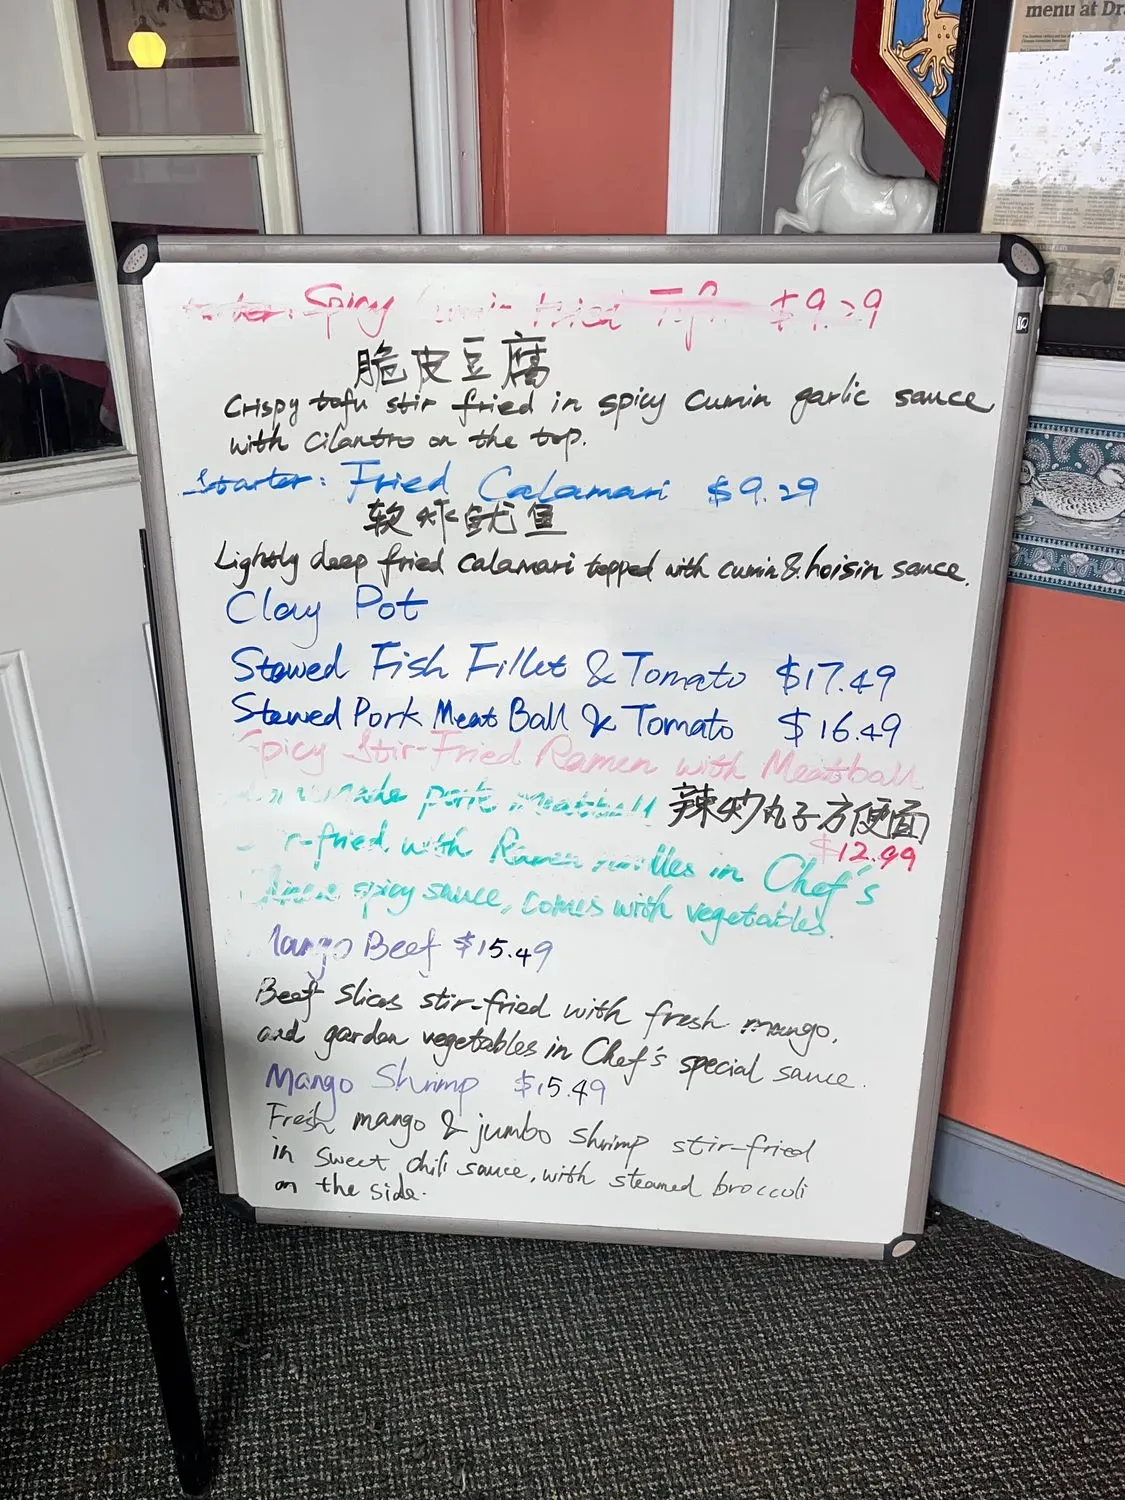 menu at Dra
Starter: Spicy Cumin Fried Tofu $9.29
脆皮豆腐
Crispy tofu stir fried in spicy cumin garlic sauce
with cilantro on the top.
Starter: Fried Calamari $9.29
软炸鱿鱼
Lightly deep fried calamari topped with cumin & hoisin sauce.
Clay Pot
Stewed Fish Fillet & Tomato $17.49
Stewed Pork Meat Ball & Tomato $16.49
Spicy Stir-Fried Ramen with Meatball
made pork meatball 辣炒丸子方便面
$12.99
r-fried with Ramen noodles in Chef's
spicy sauce, comes with vegetables.
Mango Beef $15.49
Beef slices stir-fried with fresh mango,
and garden vegetables in Chef's special sauce.
Mango Shrimp $15.49
Fresh mango & jumbo shrimp stir-fried
in sweet chili sauce, with steamed broccoli
on the side.